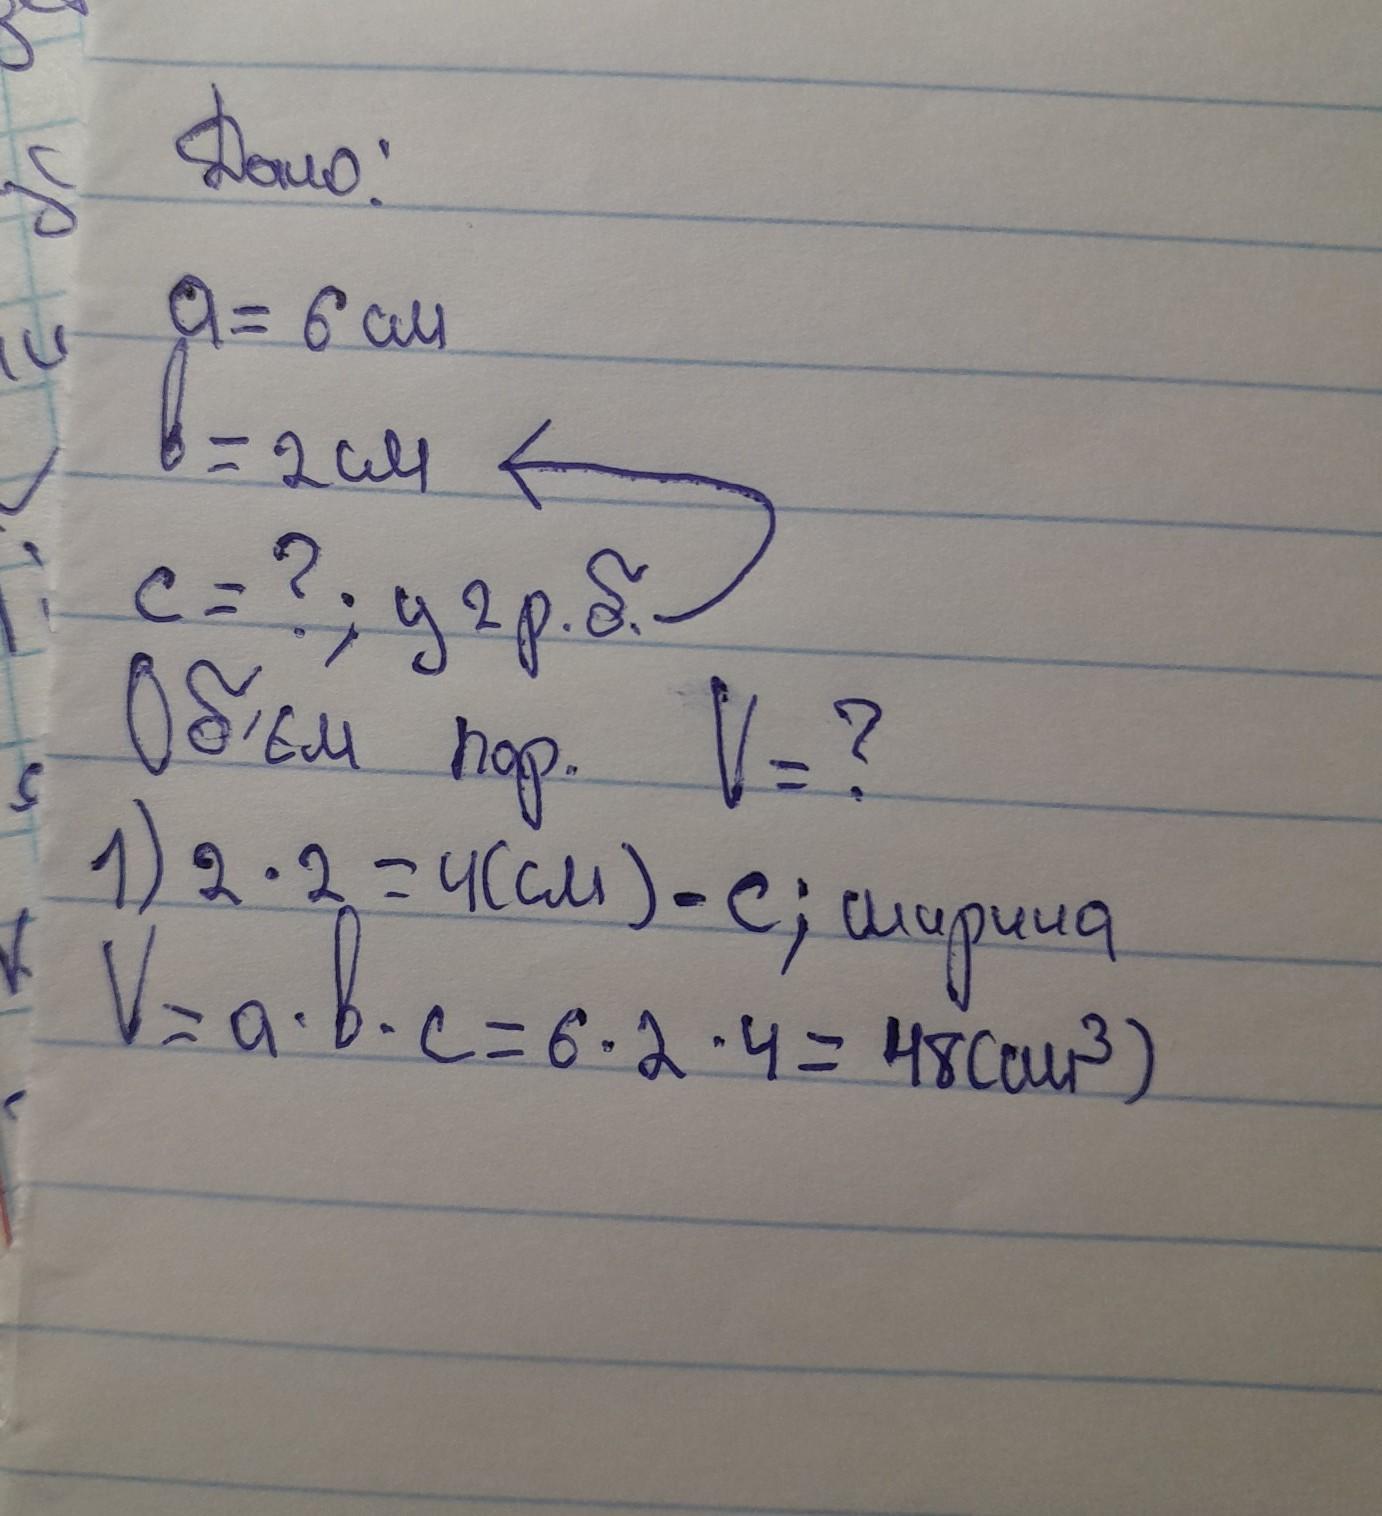 Дано:
a = 6 см
b = 2 см
c = ?; у 2 р. б.
Об'єм пар. V = ?
1) 2 · 2 = 4 (см) - c; ширина
V = a · b · c = 6 · 2 · 4 = 48 (см³)